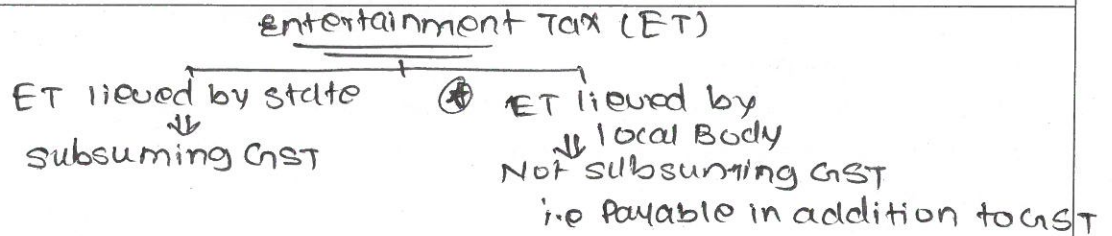 Entertainment Tax (ET)
ET lieved by state
⇓
subsuming GST
* ET lieved by
⇓ local Body
Not subsuming GST
i.e Payable in addition to GST